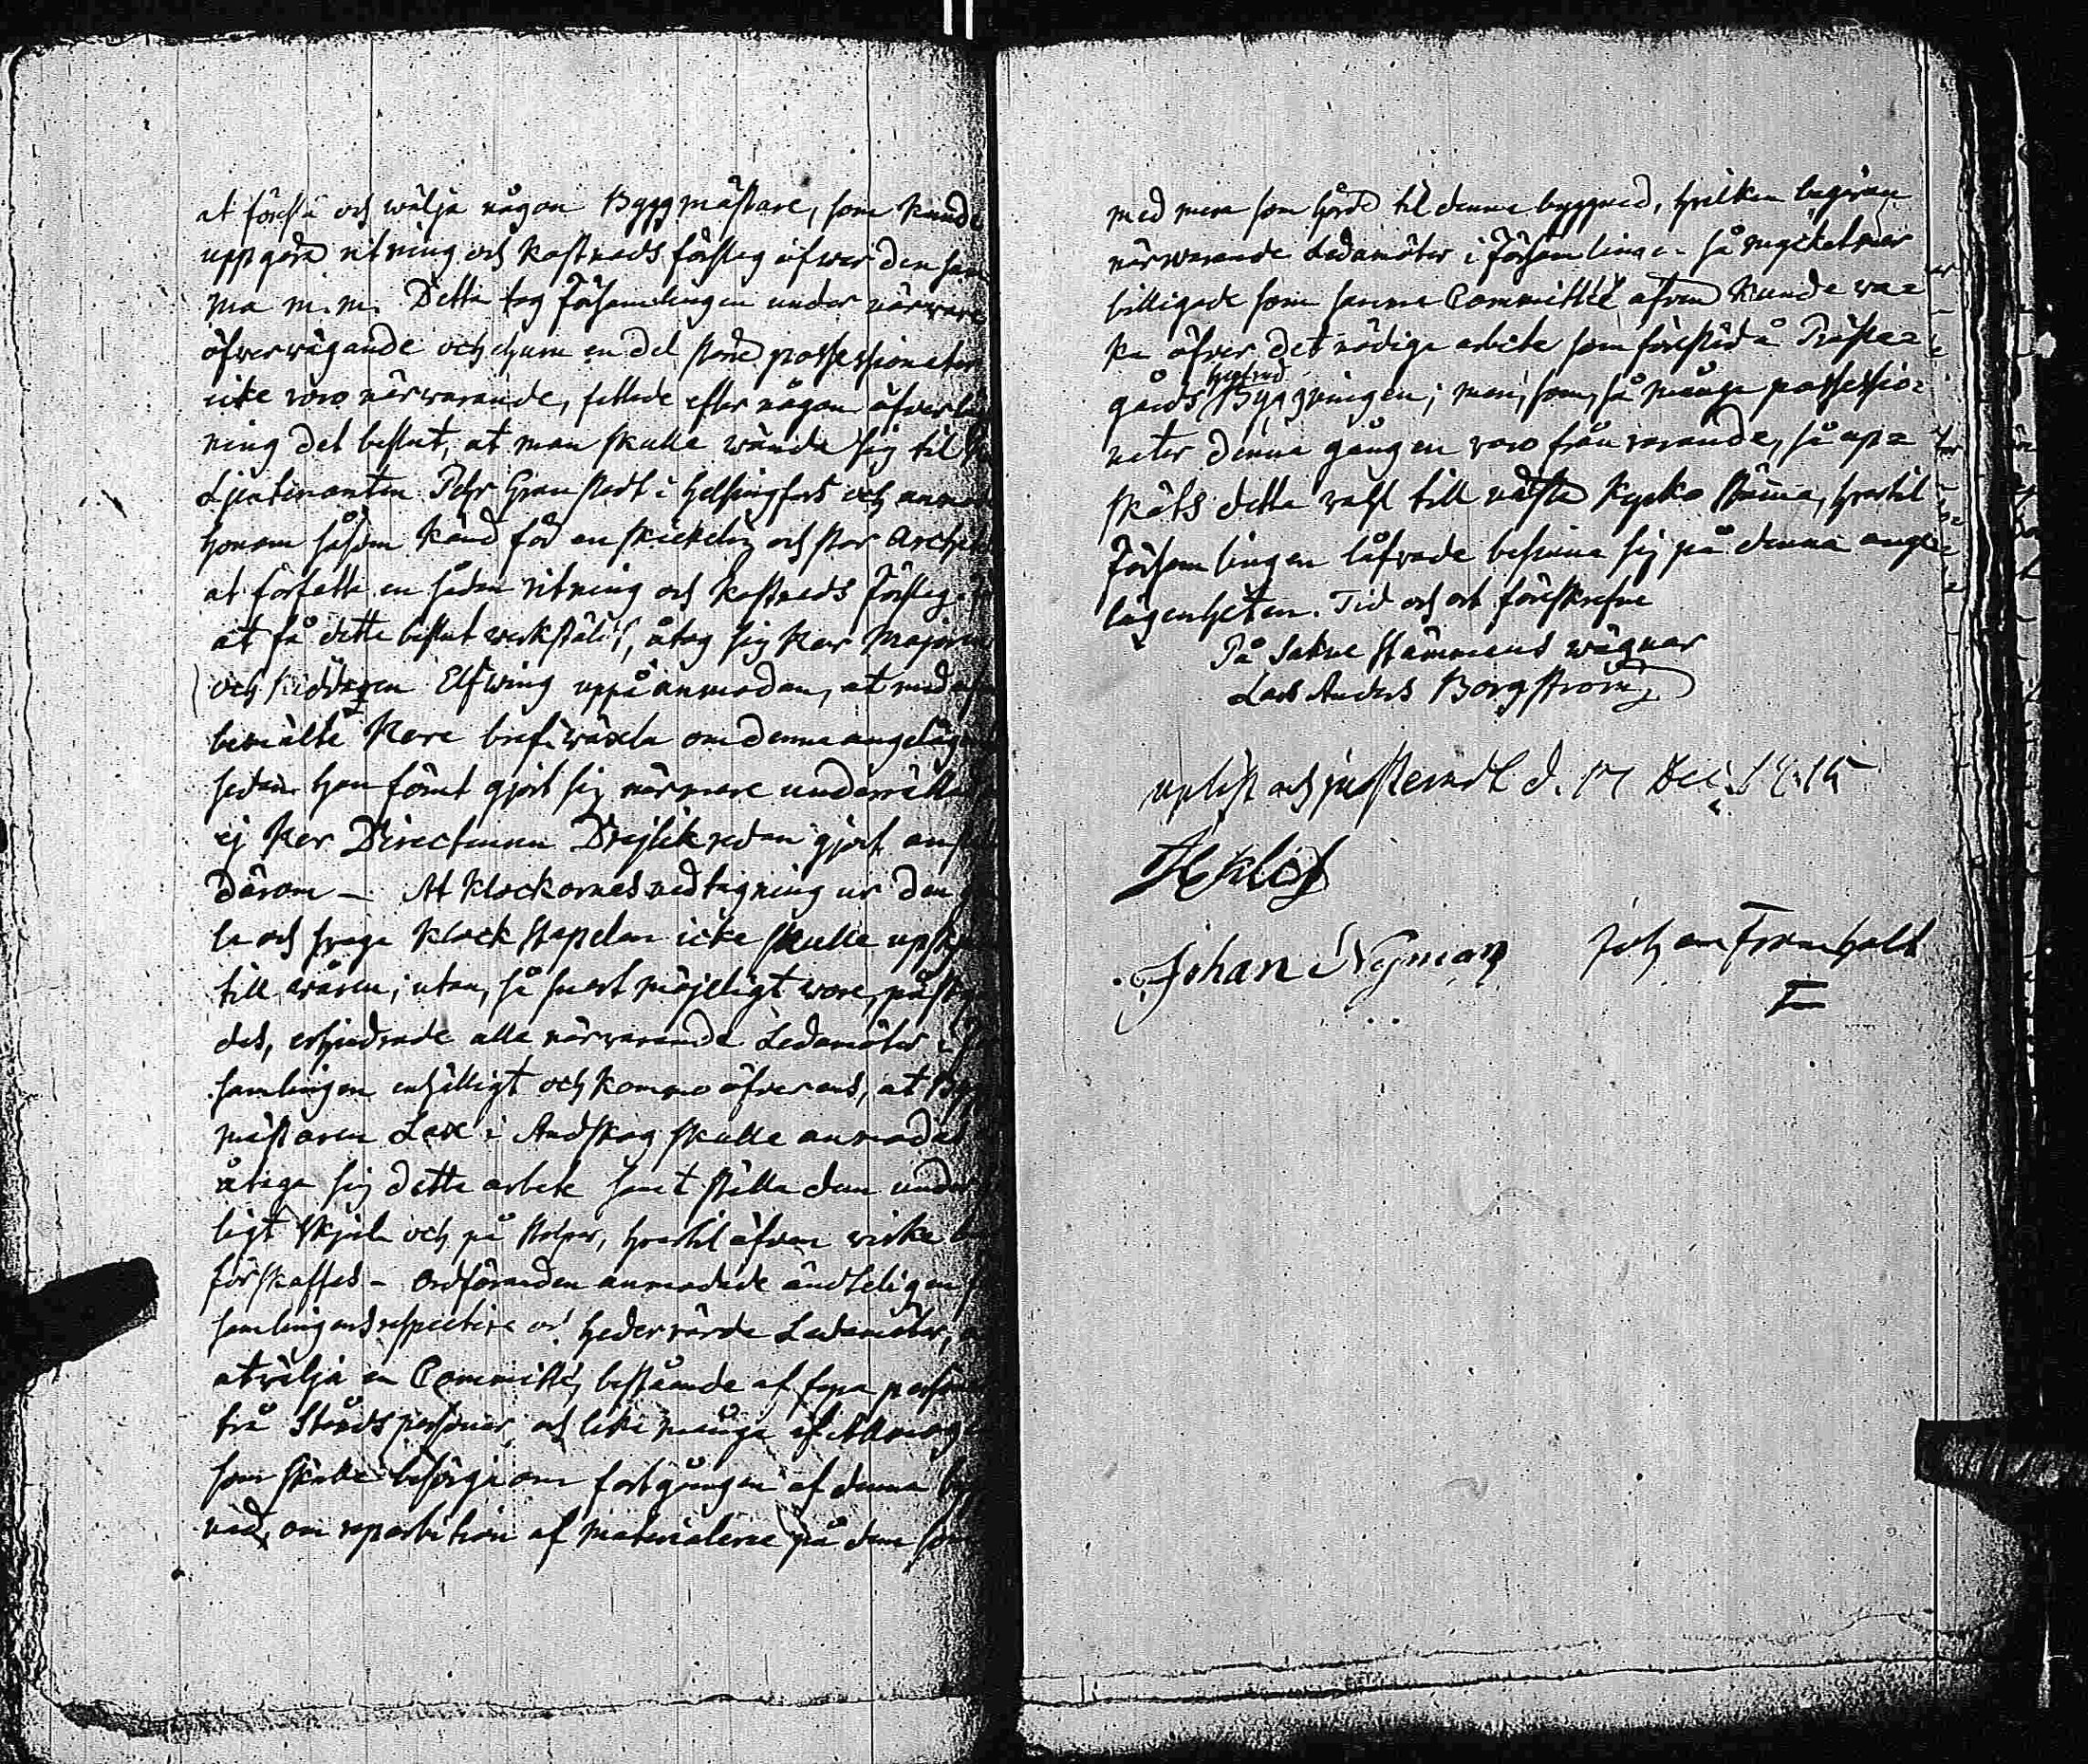 at föreslå och wälja någon Byggmästare, som kunde
uppgöra ritning och kostnads förslag öfwer den sam
ma m.m. Detta tog Församlingen under närvara
öfwerwägande och ehuru en del större possessionater
icke woro närwarande, fattade efter någon öfwerläg
ning det beslut, at man skulle wända sig til
Lieutenanten Pehr Granstedt i Helsingfors och anmo
honom såsom känd för en skickelig och stor Archite
at författa en sådan ritning och kostnads förslag.
at få detta beslut werkstäldt, åtog sig Herr Majoren
och Riddaren Elfwing uppå anmodan, at med
bemälte Herre brefwäxla om denna angeläg
sedan han förut gjort sig närmare underrättad
ej Herr Directeuren Drejlik redan gjort
därom – At klockornes nedtagning ur den
la och swaga klockstapelen icke skulle upsk
till wåren, utan, så snart möjeligt wore, påsky
des, erhindrade alla närwarande Ledamöter i
samlingen enhälligt och kommo öfverens, at Bygg
mästaren Lax i Andskog skulle anmodas
åtaga sig detta arbete samt ställa dem under
ligt skjul och på stolpar, hwartil äfven wirke
förskaffas – Ordföranden anmodade ändteligen
samlingens respective och hedervärda Ledamöter,
at wälja en Committé, bestående af fyra personer
två Ståndspersoner, och lika många af Allmoge
som skulle besörja om fortgången af denna
nad, om repartition af materialerne på dem som
med mera som hörde til denna byggnad, hvilken begäran
närwarande Ledamöter i Församlingen så mycket mer
billigade som samma Committé äfven kunde wa=
ka öfver det nödiga arbete som förestod å Präste=
gårds Byggningen; men, som, så många possessio=
nater denna gången woro frånvarande, så up=
sköts detta wahl till nästa Kyrko stämma, hwartil
Församlingen låfvade besinna sig på denna ange=
lägenheten. Tid och ort föreskrefne
På Sakne stämmans wägnar
Lars Anders Borgström
uplist och justerardt d. 17 Dec.
Johan Nyman Johan Fromholt